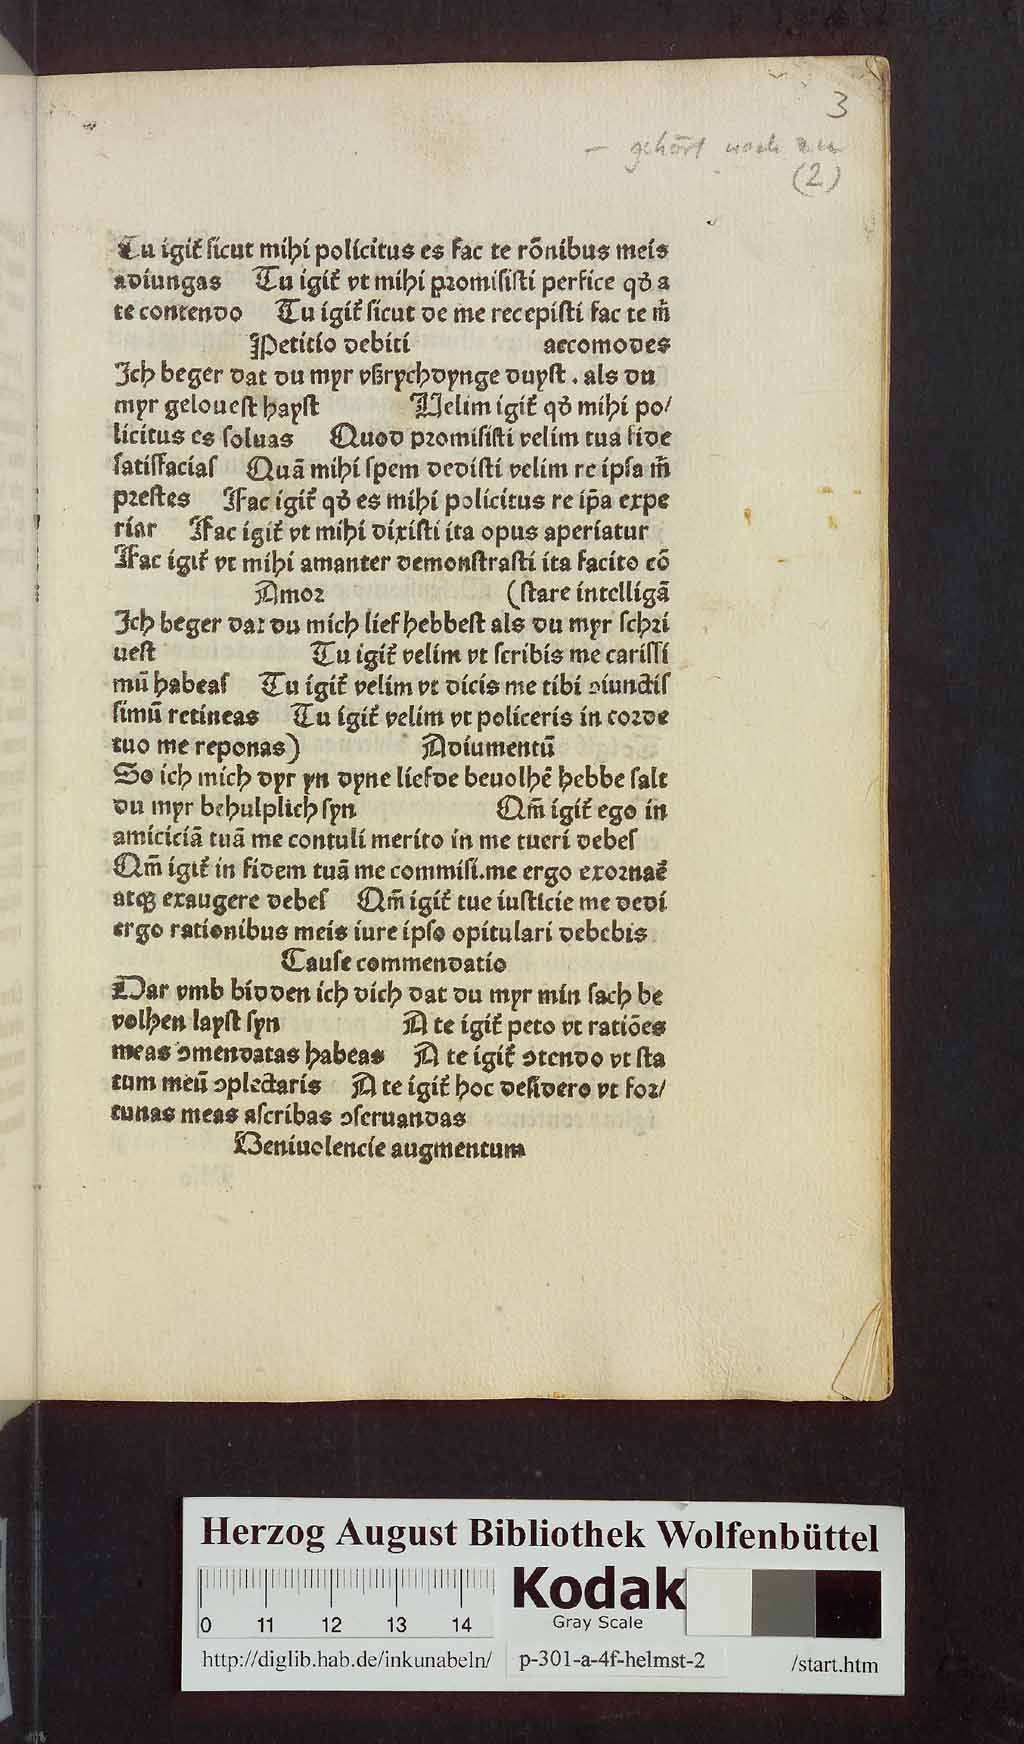 3
– gehört noch zu
(2)
Tu igit᷑ sicut mihi policitus es fac te rōnibus meis
adiungas Tu igit᷑ vt mihi promisisti perfice qd̄ a
te contendo Tu igit᷑ sicut de me recepisti fac te m̄
Petitio debiti accomodes
Jch beger dat du myr vßrychdynge duyst . als du
myr gelouest hayst Uelim igit᷑ qd̄ mihi po/
licitus es soluas Quod promisisti velim tua fide
satisfacias Quā mihi spem dedisti velim re ipsa m̄
prestes Fac igit᷑ qd̄ es mihi policitus re ip̄a expe
riar Fac igit᷑ vt mihi dixisti ita opus aperiatur
Fac igit᷑ vt mihi amanter demonstrasti ita facito cō
Amor (stare intelligā
Jch beger dat du mich lief hebbest als du myr schri
uest Tu igit᷑ velim vt scribis me carissi
mū habeas Tu igit᷑ velim vt dicis me tibi ↄiunctis
simū retineas Tu igit᷑ velim vt policeris in corde
tuo me reponas) Adiumentū
So ich mich dyr yn dyne liefde beuolhē hebbe salt
du myr behulplich syn Qm̄ igit᷑ ego in
amiciciā tuā me contuli merito in me tueri debes
Qm̄ igit᷑ in fidem tuā me commisi.me ergo exornae᷑
atqꝫ exaugere debes Qm̄ igit᷑ tue iusticie me dedi
ergo rationibus meis iure ipso opitulari debebis
Cause commendatio
Dar vmb bidden ich dich dat du myr min sach be
volhen layst syn A te igit᷑ peto vt ratiōes
meas ↄmendatas habeas A te igit᷑ ↄtendo vt sta
tum meū ↄplectaris A te igit᷑ hoc desidero vt for/
tunas meas ascribas ↄseruandas
Beniuolencie augmentum
Herzog August Bibliothek Wolfenbüttel
0 11 12 13 14
Kodak
Gray Scale
http://diglib.hab.de/inkunabeln/ p-301-a-4f-helmst-2 /start.htm